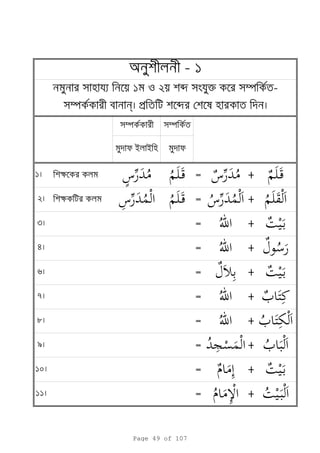 অনুশীলনী - ১
নমুনার সাহায্য নিয়ে ১ম ও ২য় শব্দ সংযুক্ত করে সম্পর্কিত-
সম্পর্ককারী বানান্। প্রতিটি শব্দের শেষে হারকাত দিন।
সম্পর্ককারী সম্পর্কিত
মুদাফ ইলাইহি মুদাফ
১। শিক্ষকের কলম قَلَمُ مُدَرِّسٍ = مُدَرِّسٌ + قَلَمٌ
২। শিক্ষকটির কলম قَلَمُ الْمُدَرِّسِ = اَلْمُدَرِّسُ + اَلْقَلَمُ
৩। = اللهُ + بَيْتٌ
৪। = اللهُ + رَسُولٌ
৬। = بِلَالٌ + بَيْتٌ
৭। = اللهُ + كِتَابٌ
৮। = اللهُ + اَلْكِتَابُ
৯। = الْمَسْجِدُ + اَلْبَابُ
১০। = إِمَامٌ + بَيْتٌ
১১। = اَلْإِمَامُ + اَلْبَيْتُ
Page 49 of 107